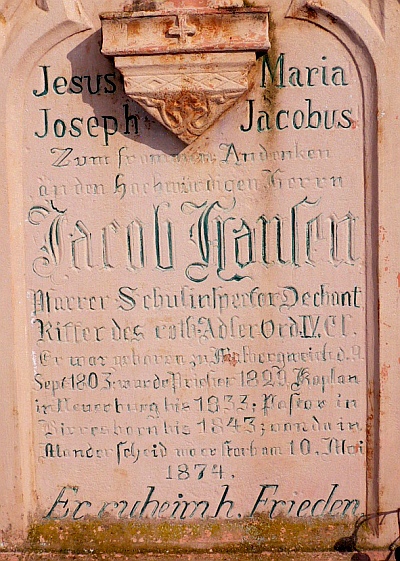 Jesus Maria
Joseph Jacobus
Zum frommen Andenken
an den Hochwürdigen Herrn
Jacob Hansen
Pfarrer Schulinspector Dechant
Ritter des roth. Adler Ord. IV. Cl.
Er war geboren zu d. 9.
Sept. 1803, wurde Priester 1829, Kaplan
in Neuerburg bis 1833; Pastor in
Birresborn bis 1843; von da in
Manderscheid wo er starb am 10. Mai
1874.
Er ruhe im h. Frieden